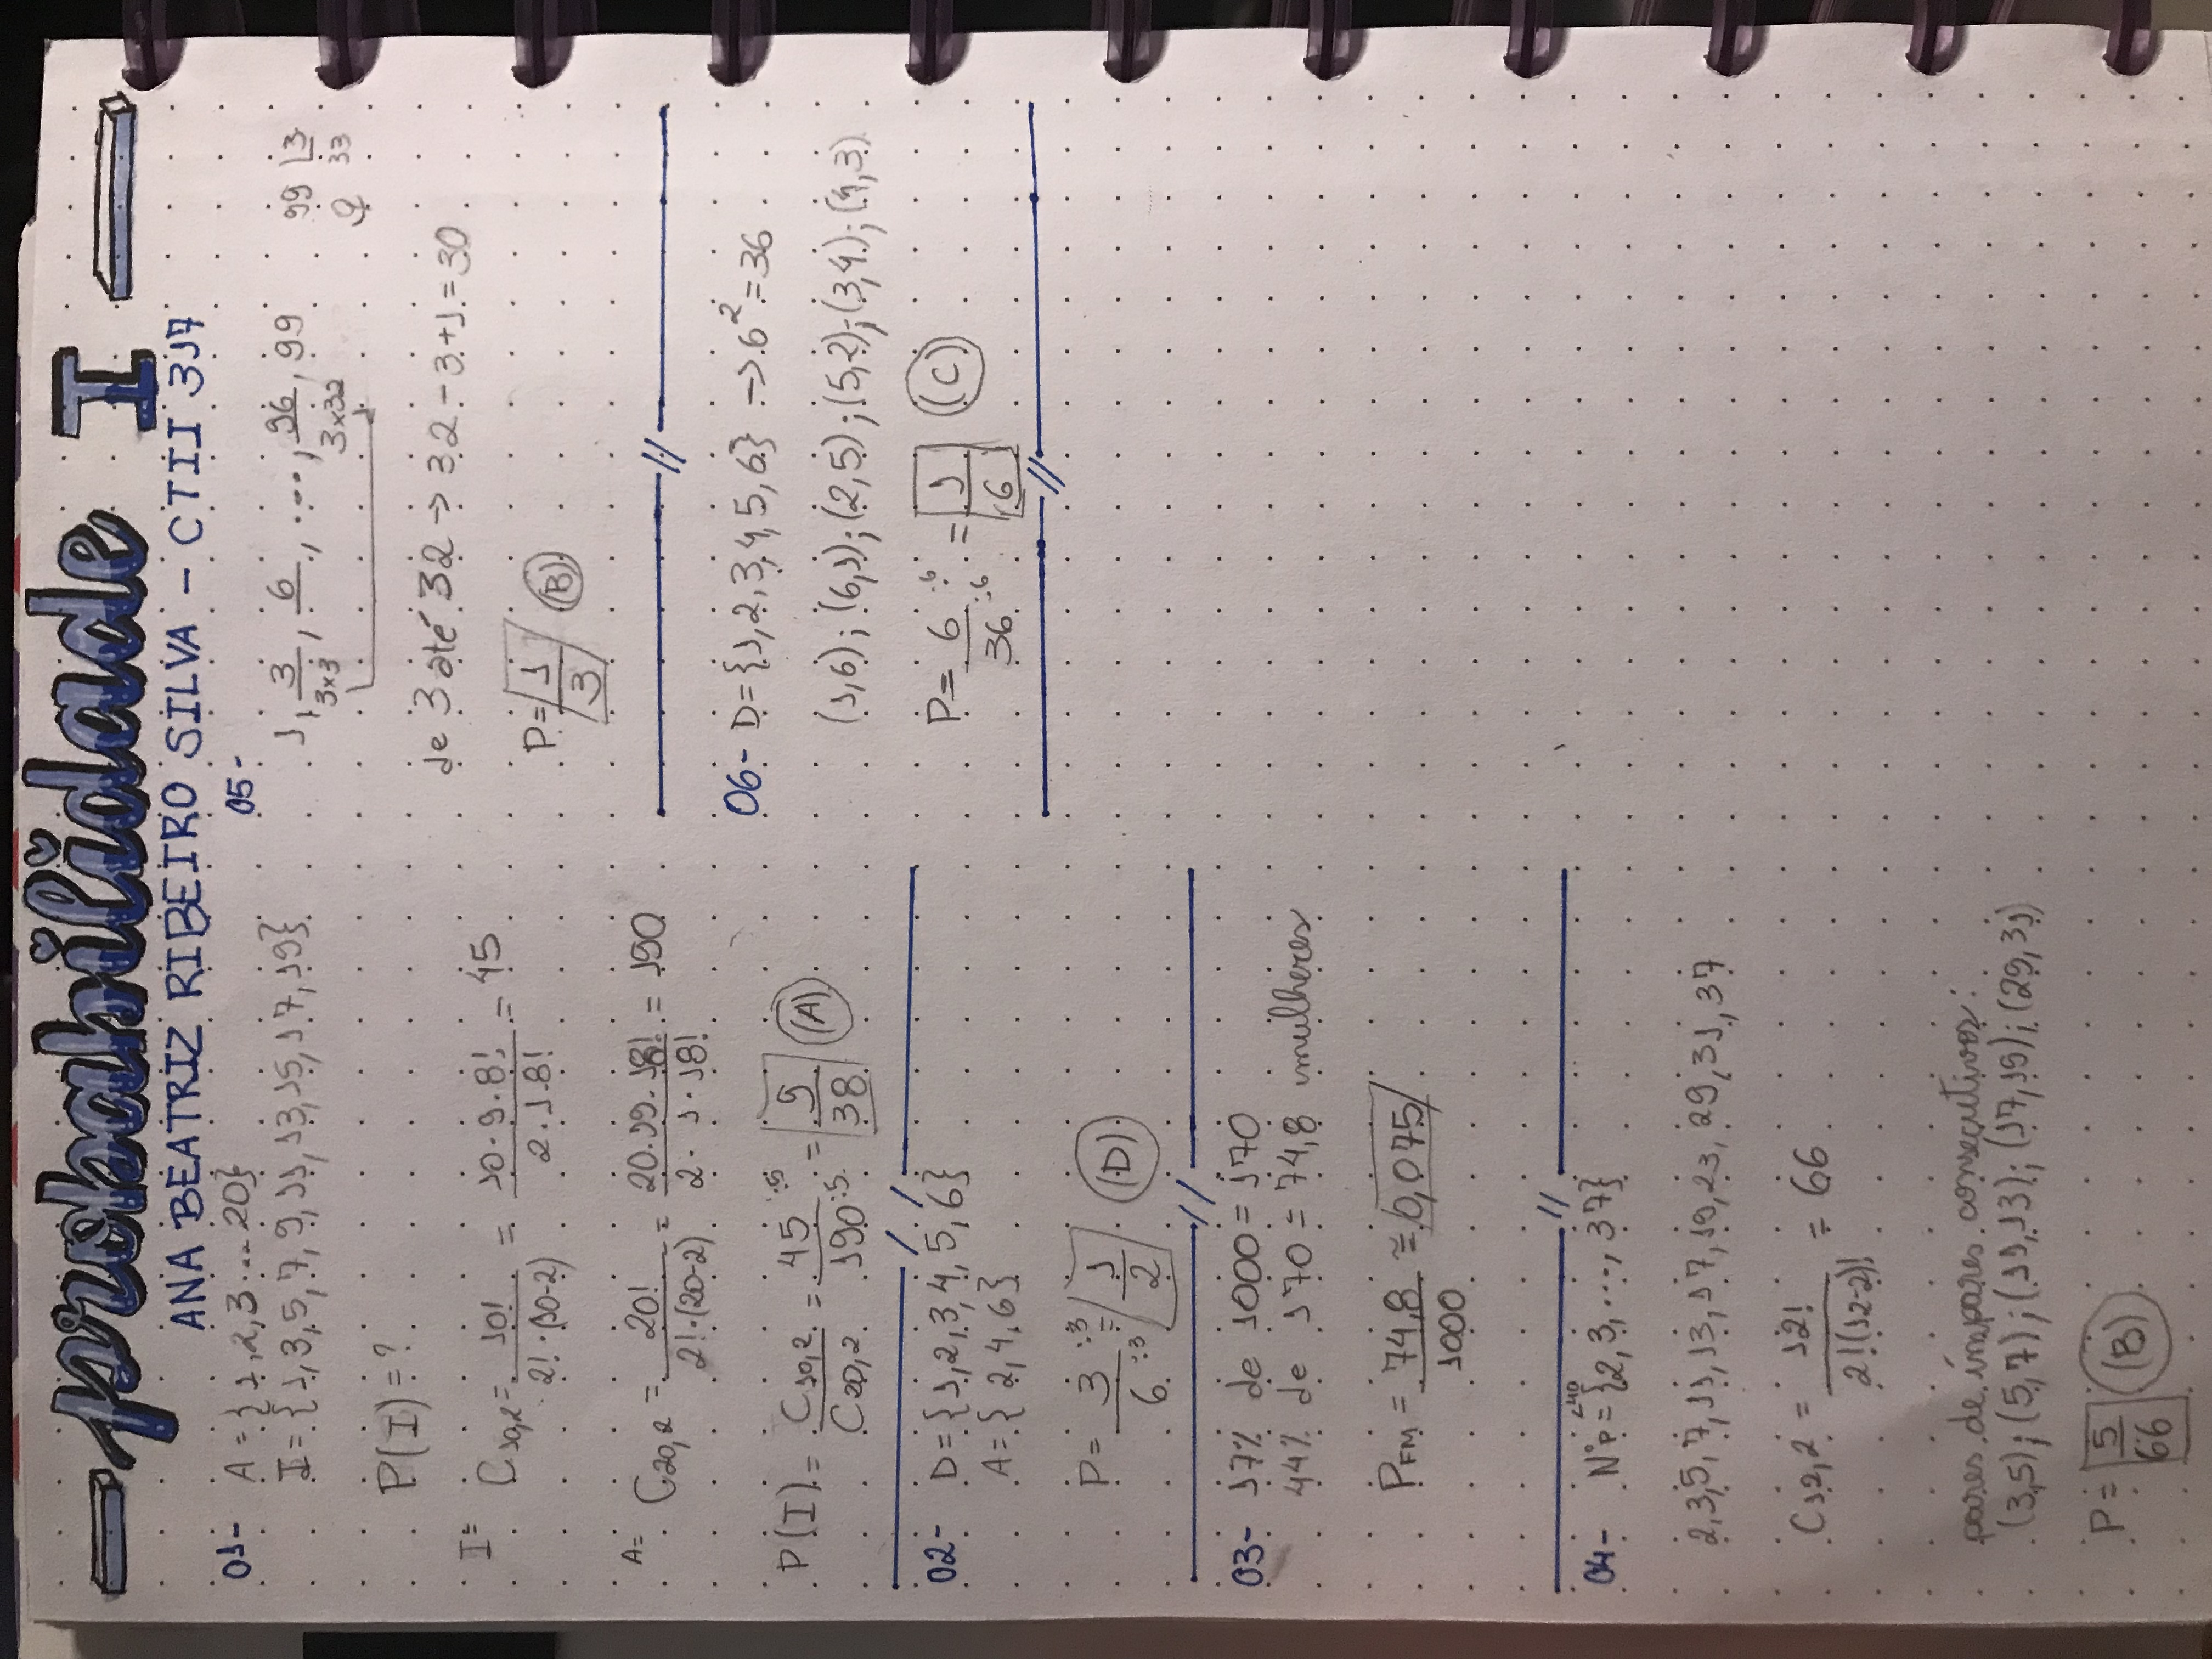 probabilidade I
ANA BEATRIZ RIBEIRO SILVA - CTII 317
01- A = {1,2,3... 20}
I = {1,3,5,7,9,11,13,15,17,19}
P(I) = ?
I= C10,2 = 10! / 2!·(10-2) = 10·9·8! / 2·1·8! = 45
A= C20,2 = 20! / 2!·(20-2) = 20·19·18! / 2·1·18! = 190
P(I) = C10,2 / C20,2 = 45 :5 / 190 :5 = 9/38 (A)
02- D = {1,2,3,4,5,6}
A = {2,4,6}
P = 3 :3 / 6 :3 = 1/2 (D)
03- 17% de 1000 = 170
44% de 170 = 74,8 mulheres
PFM = 74,8 / 1000 ≅ 0,075
04- N°p <40 = {2,3,...,37}
2,3,5,7,11,13,17,19,23,29,31,37
C12,2 = 12! / 2!(12-2)! = 66
pares de ímpares consecutivos:
(3,5);(5,7);(11,13);(17,19);(29,31)
P = 5/66 (B)
05-
1, 3, 6, ..., 96, 99 99 |3
3x3 3x32 0 33
de 3 até 32 → 32 - 3 + 1 = 30
P = 1/3 (B)
06- D = {1,2,3,4,5,6} → 6² = 36
(1,6);(6,1);(2,5);(5,2);(3,4);(4,3)
P = 6 :6 / 36 :6 = 1/6 (C)